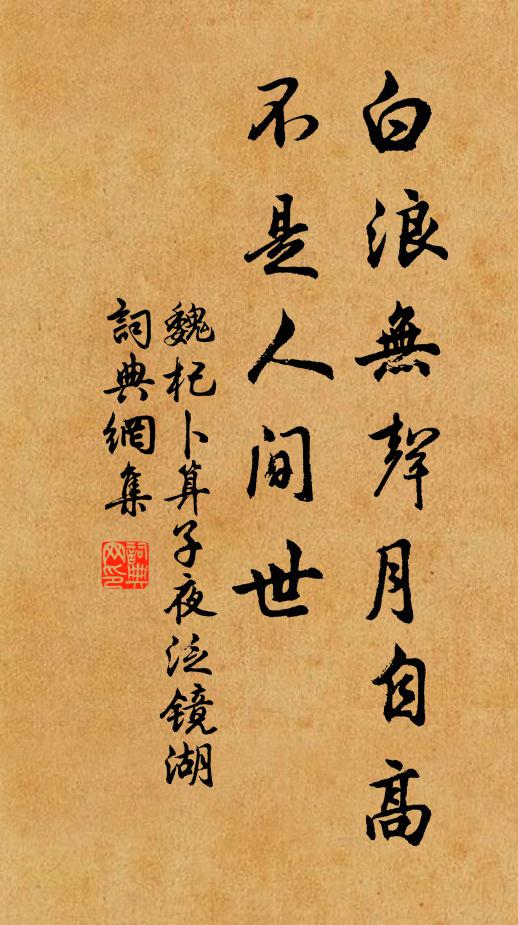 白浪無聲月自高
不是人間世
魏杞卜算子夜泛鏡湖
詞典網集
詞典网印